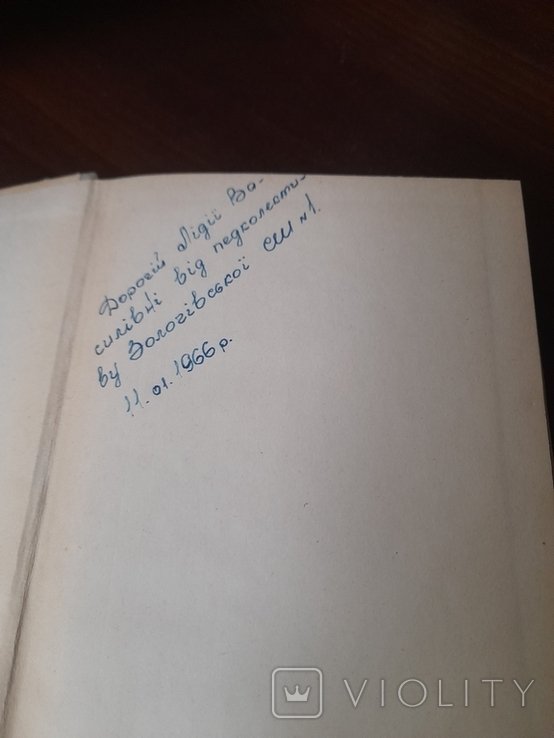 Дорогій Лідії Ва-
силівні від педколекти-
ву Золочівської СШ №1.
11.01.1966 р.
VIOLITY